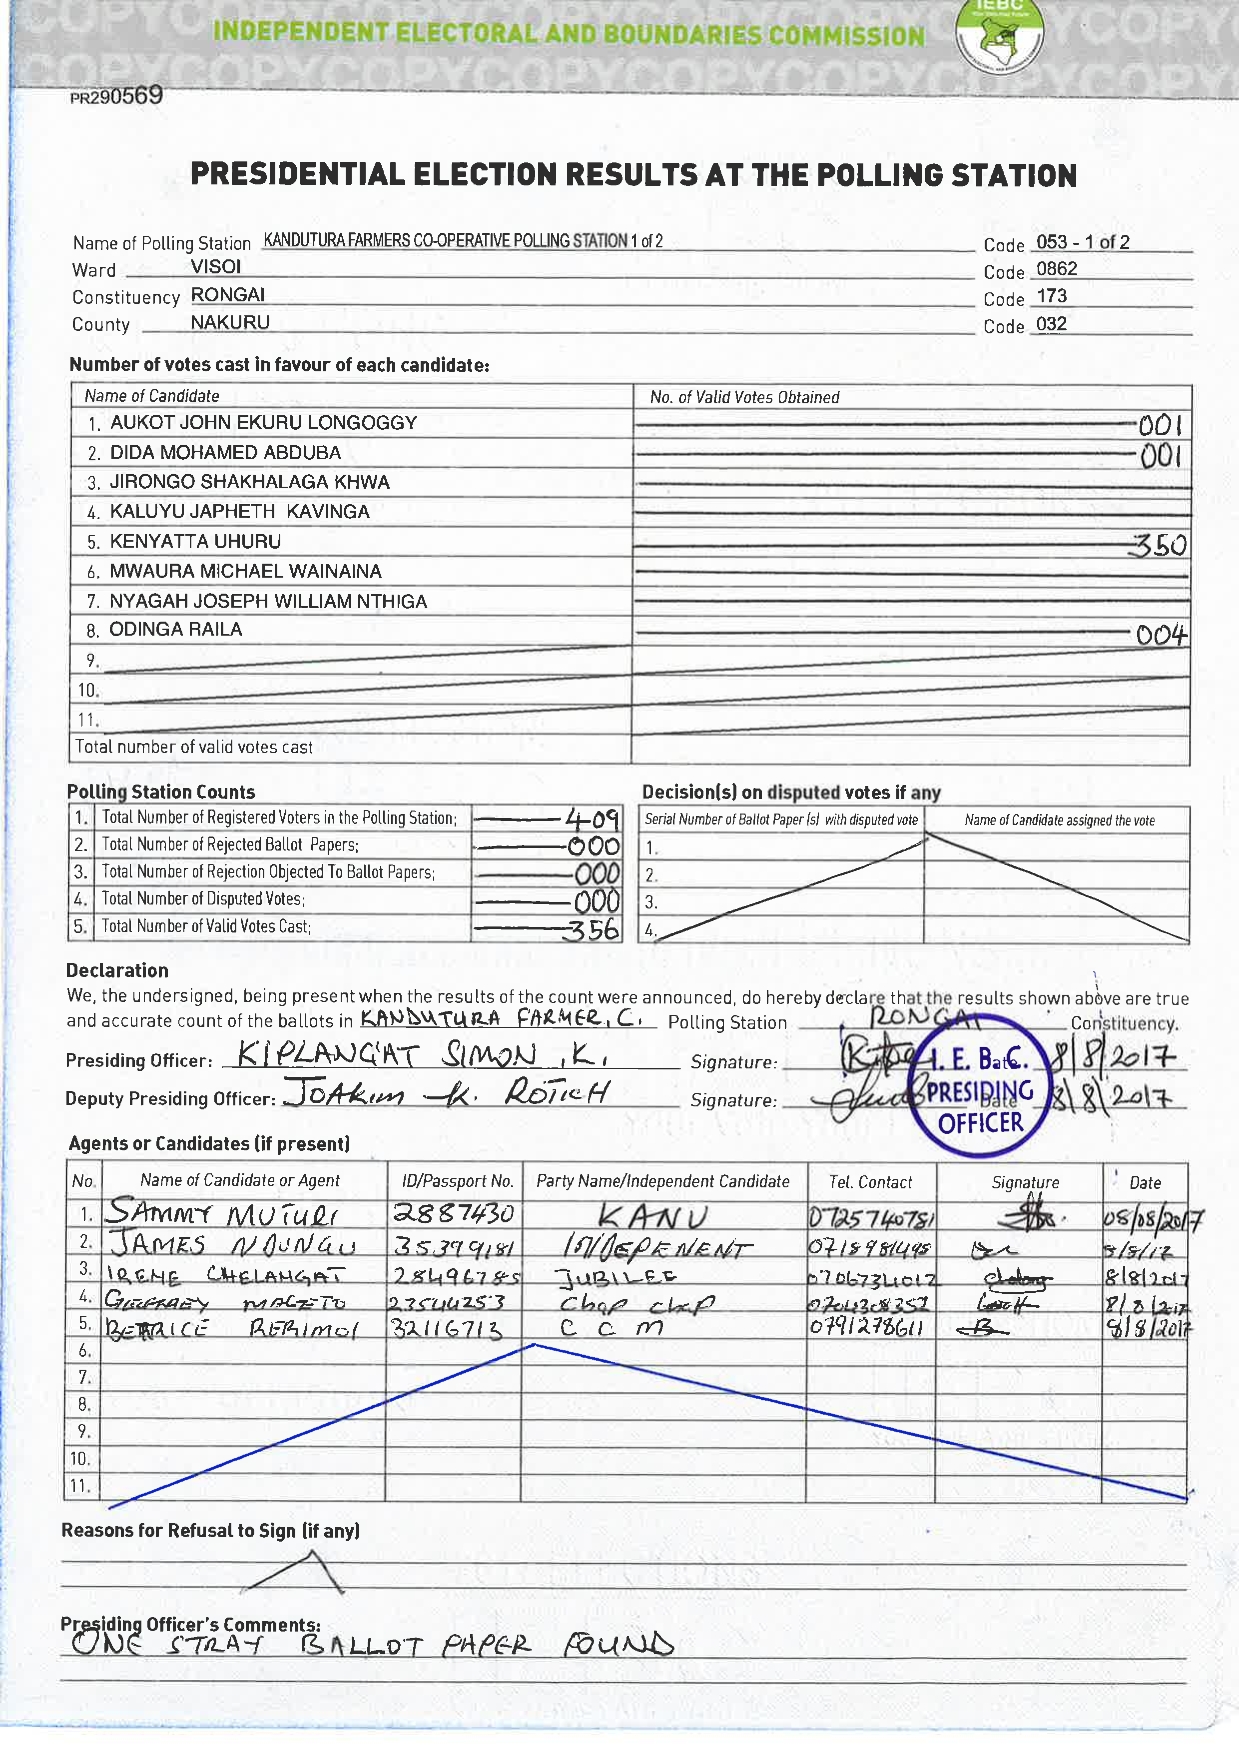 INDEPENDENT ELECTORAL AND BOUNDARIES COMMISSION
IEBC
PR290569
PRESIDENTIAL ELECTION RESULTS AT THE POLLING STATION
Name of Polling Station KANDUTURA FARMERS CO-OPERATIVE POLLING STATION 1 of 2 Code 053 - 1 of 2
Ward VISOI Code 0862
Constituency RONGAI Code 173
County NAKURU Code 032
Number of votes cast in favour of each candidate:
Name of Candidate No. of Valid Votes Obtained
1. AUKOT JOHN EKURU LONGOGGY 001
2. DIDA MOHAMED ABDUBA 001
3. JIRONGO SHAKHALAGA KHWA
4. KALUYU JAPHETH KAVINGA
5. KENYATTA UHURU 350
6. MWAURA MICHAEL WAINAINA
7. NYAGAH JOSEPH WILLIAM NTHIGA
8. ODINGA RAILA 004
9.
10.
11.
Total number of valid votes cast
Polling Station Counts
1. Total Number of Registered Voters in the Polling Station; 409
2. Total Number of Rejected Ballot Papers; 000
3. Total Number of Rejection Objected To Ballot Papers; 000
4. Total Number of Disputed Votes; 000
5. Total Number of Valid Votes Cast; 356
Decision(s) on disputed votes if any
Serial Number of Ballot Paper (s) with disputed vote Name of Candidate assigned the vote
1.
2.
3.
4.
Declaration
We, the undersigned, being present when the results of the count were announced, do hereby declare that the results shown above are true
and accurate count of the ballots in KANDUTURA FARMER, C. Polling Station RONGAI Constituency.
Presiding Officer: KIPLANGAT SIMON .K. Signature: Date 8/8/2017
Deputy Presiding Officer: JOAKIM K. ROTICH Signature: Date 8/8/2017
I. E. B. C.
PRESIDING
OFFICER
Agents or Candidates (if present)
No. Name of Candidate or Agent ID/Passport No. Party Name/Independent Candidate Tel. Contact Signature Date
1. SAMMY MUTURI 2887430 KANU 0725740781 08/08/2017
2. JAMES NDUNGU 35399181 INDEPENENT 0715981495 8/8/17
3. IRENE CHELANGAT 28496785 JUBILEE 0706734012 8/8/2017
4. 23544253 Chap chap 0704308352 8/8/2017
5. BETRICE RERIMOI 32116713 C C M 0791278611 8/8/2017
6.
7.
8.
9.
10.
11.
Reasons for Refusal to Sign (if any)
Presiding Officer's Comments:
ONE STRAY BALLOT PAPER FOUND